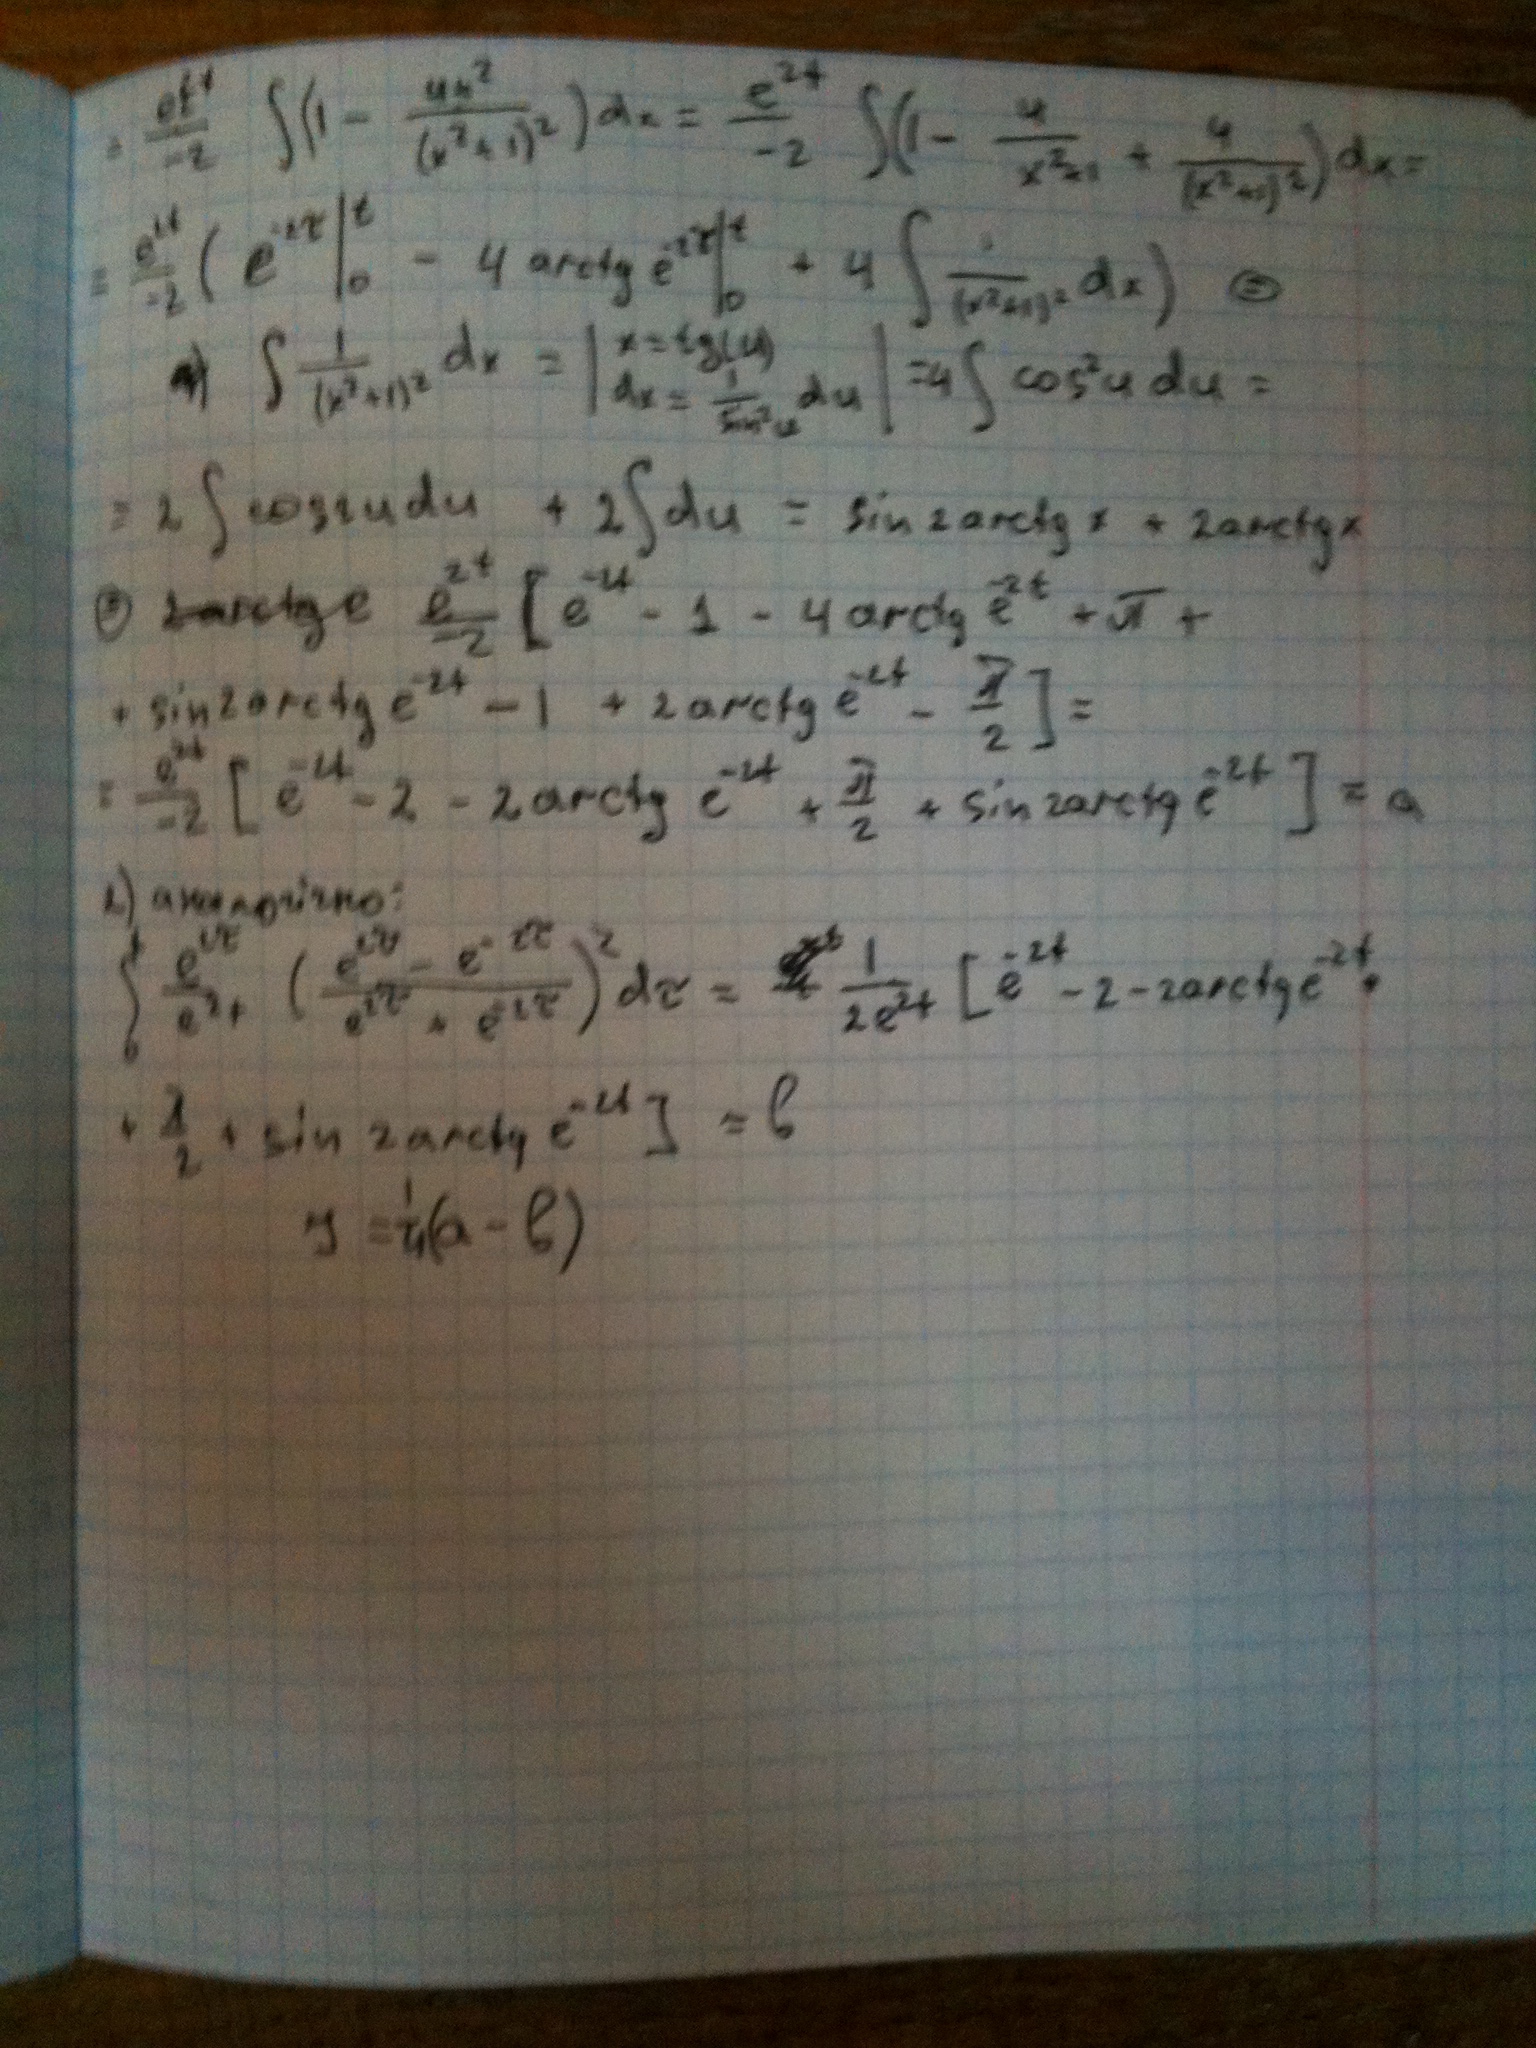 = e^{2t}/-2 ∫(1 - 4x²/(x²+1)²)dx = e^{2t}/-2 ∫(1 - 4/(x²+1) + 4/(x²+1)²)dx =
= e^{2t}/-2 (e^{-2τ}|₀ᵗ - 4 arctg e^{-2τ}|₀ᵗ + 4 ∫ 1/(x²+1)² dx) ⊜
∫ 1/(x²+1)² dx = | x = tg(u) dx = 1/sin²u du | = 4∫ cos²u du =
= 2∫ cos2u du + 2∫du = sin2arctgx + 2arctgx
⊜ e^{2t}/-2 [e^{-2t} - 1 - 4arctg e^{-2t} + π +
+ sin2arctg e^{-2t} - 1 + 2arctg e^{-2t} - π/2] =
= e^{2t}/-2 [e^{-2t} - 2 - 2arctg e^{-2t} + π/2 + sin2arctg e^{-2t}] = a
2) аналогічно:
∫₀ᵗ e^{2τ}/e^{2t} ((e^{2τ} - e^{-2τ})/(e^{2τ} + e^{-2τ}))² dτ = 1/(2e^{2t}) [e^{-2t} - 2 - 2arctg e^{-2t}
+ π/2 + sin 2arctg e^{-2t}] = b
y = 1/4(a - b)